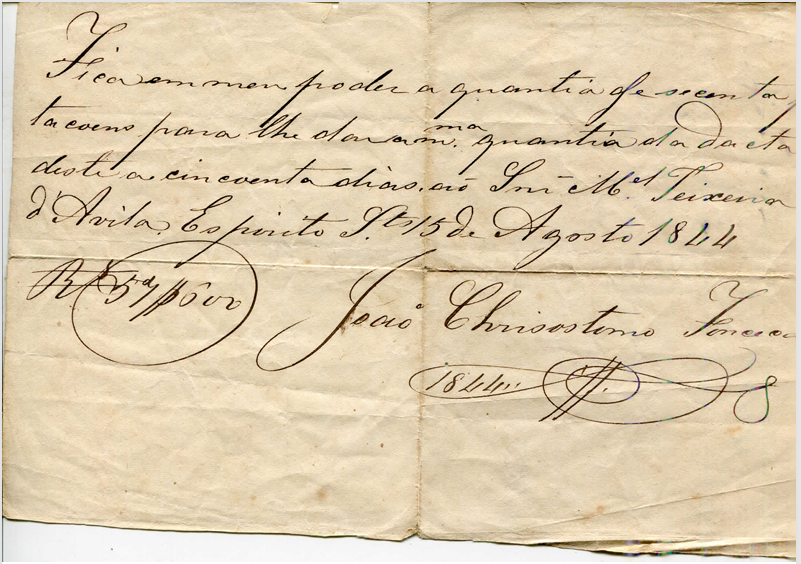 Fica em meu poder a quantia de secenta p
tacoens para lhe dar a m.ma quantia da dacta
deste a cincoenta dias, ao Snr M.el Teixeira
d'Avila, Espirito S.to 15 de Agosto 1844
R.s 57$600
João Chrisostimo Fonceca
1844